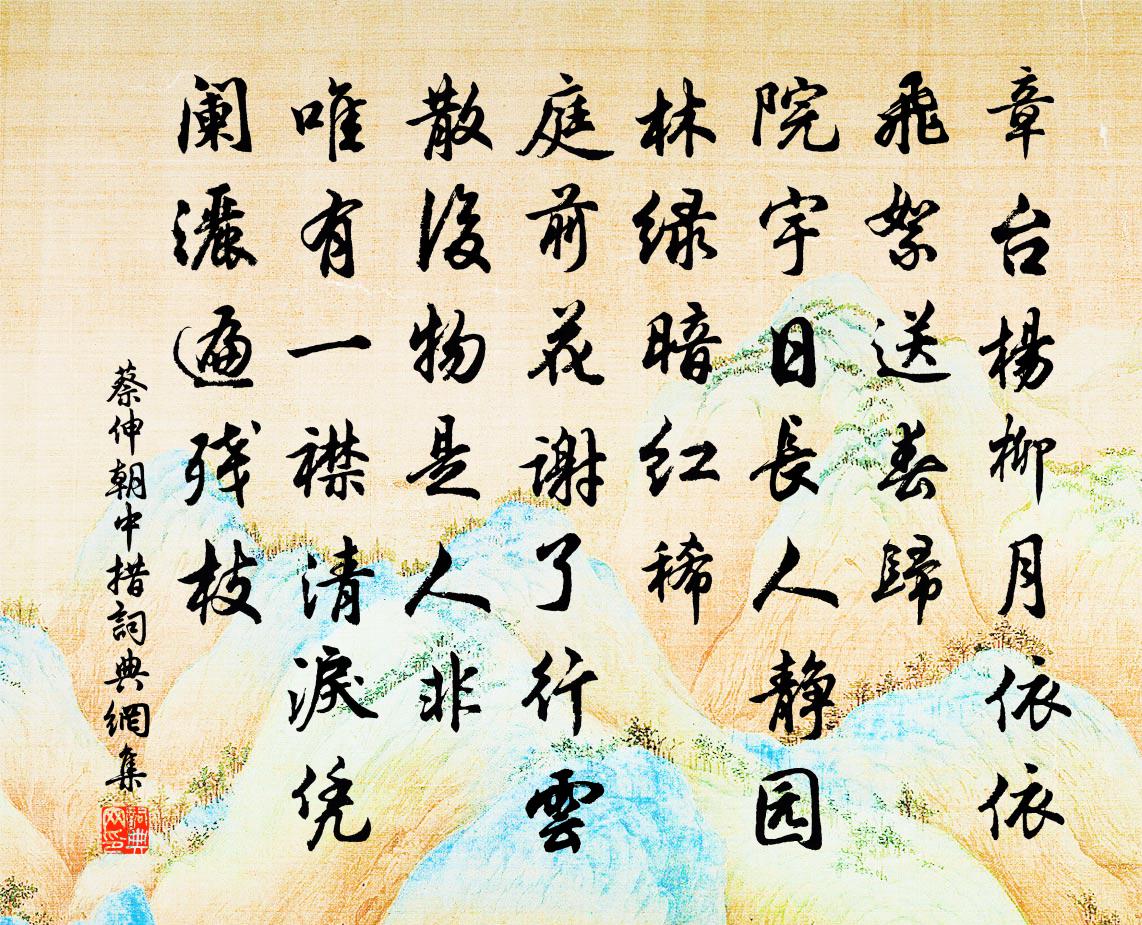 章台楊柳月依依
飛絮送春歸
院宇日長人静园
林绿暗红稀
庭前花謝了行雲
散後物是人非
唯有一襟清淚凭
阑灑遍残枝
蔡伸朝中措詞典網集
詞典
网印